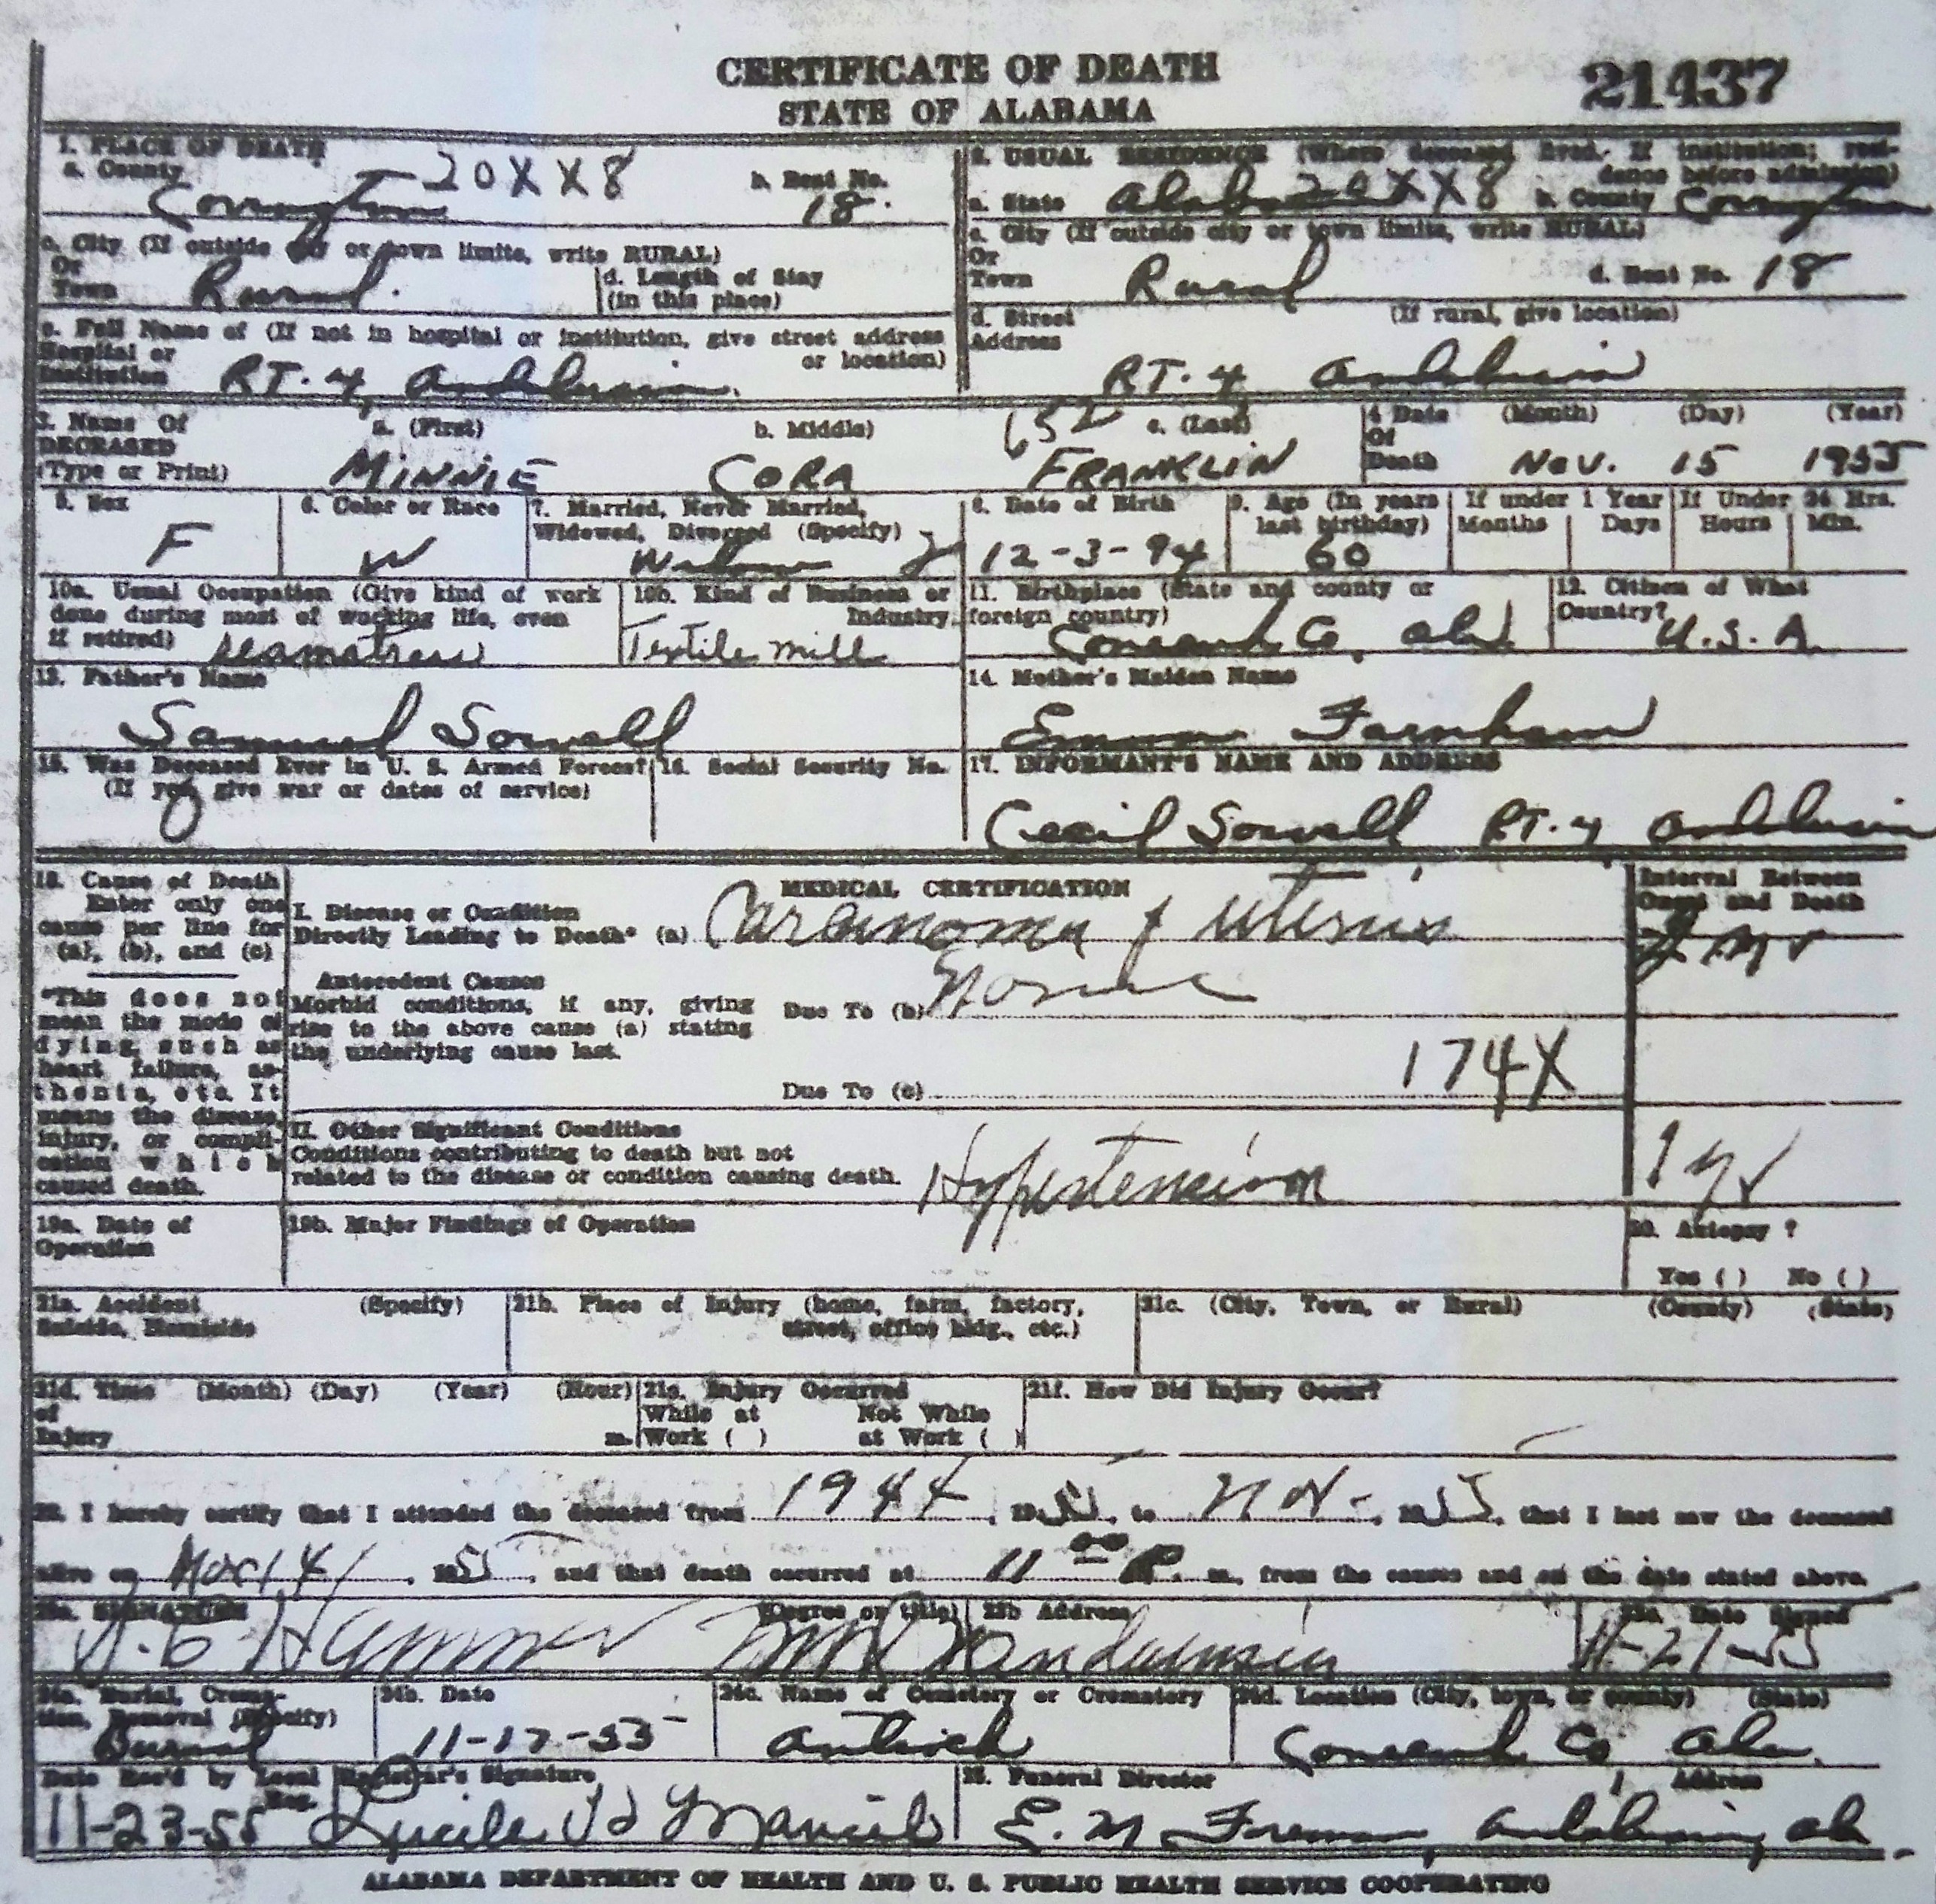 CERTIFICATE OF DEATH
STATE OF ALABAMA
21437
1. PLACE OF DEATH
a. County
20XX8
Covington
b. Beat No.
18.
c. City (If outside city or town limits, write RURAL)
Or
Town
Rural.
d. Length of Stay
(in this place)
e. Full Name of (If not in hospital or institution, give street address
Hospital or
or location)
Institution
RT. 4, Andalusia.
2. USUAL RESIDENCE (Where deceased lived. If institution; resi-
dence before admission)
a. State
20XX8
b. County Covington
c. City (If outside city or town limits, write RURAL)
Or
Town
Rural
d. Beat No. 18
d. Street
(If rural, give location)
Address
RT. 4 Andalusia
3. Name Of
DECEASED
(Type or Print)
a. (First)
b. Middle)
c. (Last)
MINNIE CORA FRANKLIN
4 Date
Of
Death
(Month) (Day) (Year)
Nov. 15 1955
5. Sex
F
6. Color or Race
W
7. Married, Never Married,
Widowed, Divorced (Specify)
Widow 2
8. Date of Birth
12-3-94
9. Age (In years
last birthday)
60
If under 1 Year
Months Days
If Under 24 Hrs.
Hours Min.
10a. Usual Occupation (Give kind of work
done during most of working life, even
if retired)
seamstress
10b. Kind of Business or
Industry
Textile mill
11. Birthplace (State and county or
foreign country)
Conecuh Co, Ala
12. Citizen of What
Country?
U.S.A.
13. Father's Name
Samuel Sowell
14. Mother's Maiden Name
Emma Farnham
15. Was Deceased Ever in U. S. Armed Forces?
(If yes, give war or dates of service)
16. Social Security No.
17. INFORMANT'S NAME AND ADDRESS
Cecil Sowell RT. 4 Andalusia
18. Cause of Death
Enter only one
cause per line for
(a), (b), and (c)
"This does not
mean the mode of
dying, such as
heart failure, as-
thenia, etc. It
means the disease,
injury, or compli-
cation which
caused death.
MEDICAL CERTIFICATION
I. Disease or Condition
Directly Leading to Death* (a) Carcinoma of uterus
Antecedent Causes
Morbid conditions, if any, giving
rise to the above cause (a) stating
the underlying cause last.
Due To (b) None
Due To (c)
174X
Interval Between
Onset and Death
II. Other Significant Conditions
Conditions contributing to death but not
related to the disease or condition causing death.
Hypertension
1 yr
19a. Date of
Operation
19b. Major Findings of Operation
20. Autopsy ?
Yes ( ) No ( )
21a. Accident
Suicide, Homicide
(Specify)
21b. Place of Injury (home, farm, factory,
street, office bldg., etc.)
21c. (City, Town, or Rural) (County) (State)
21d. Time (Month) (Day) (Year) (Hour)
of
Injury
m.
21e. Injury Occurred
While at Not While
Work ( ) at Work ( )
21f. How Did Injury Occur?
22. I hereby certify that I attended the deceased from 1944, 19, to Nov-, 1955, that I last saw the deceased
alive on, 1955, and that death occurred at 11 00 P. m., from the causes and on the date stated above.
23a. SIGNATURE
(Degree or title)
Hammer
23b Address
Andalusia
23c. Date Signed
11-21-55
24a. Burial, Crema-
tion, Removal (Specify)
Burial
24b. Date
11-17-55
24c. Name of Cemetery or Crematory
Antioch
24d. Location (City, town, or county) (State)
Conecuh Co Ala.
Date Rec'd by Local
Reg.
11-23-55
Registrar's Signature
Lucile
25. Funeral Director
Address
E. M. Andalusia, Ala.
ALABAMA DEPARTMENT OF HEALTH AND U. S. PUBLIC HEALTH SERVICE COOPERATING